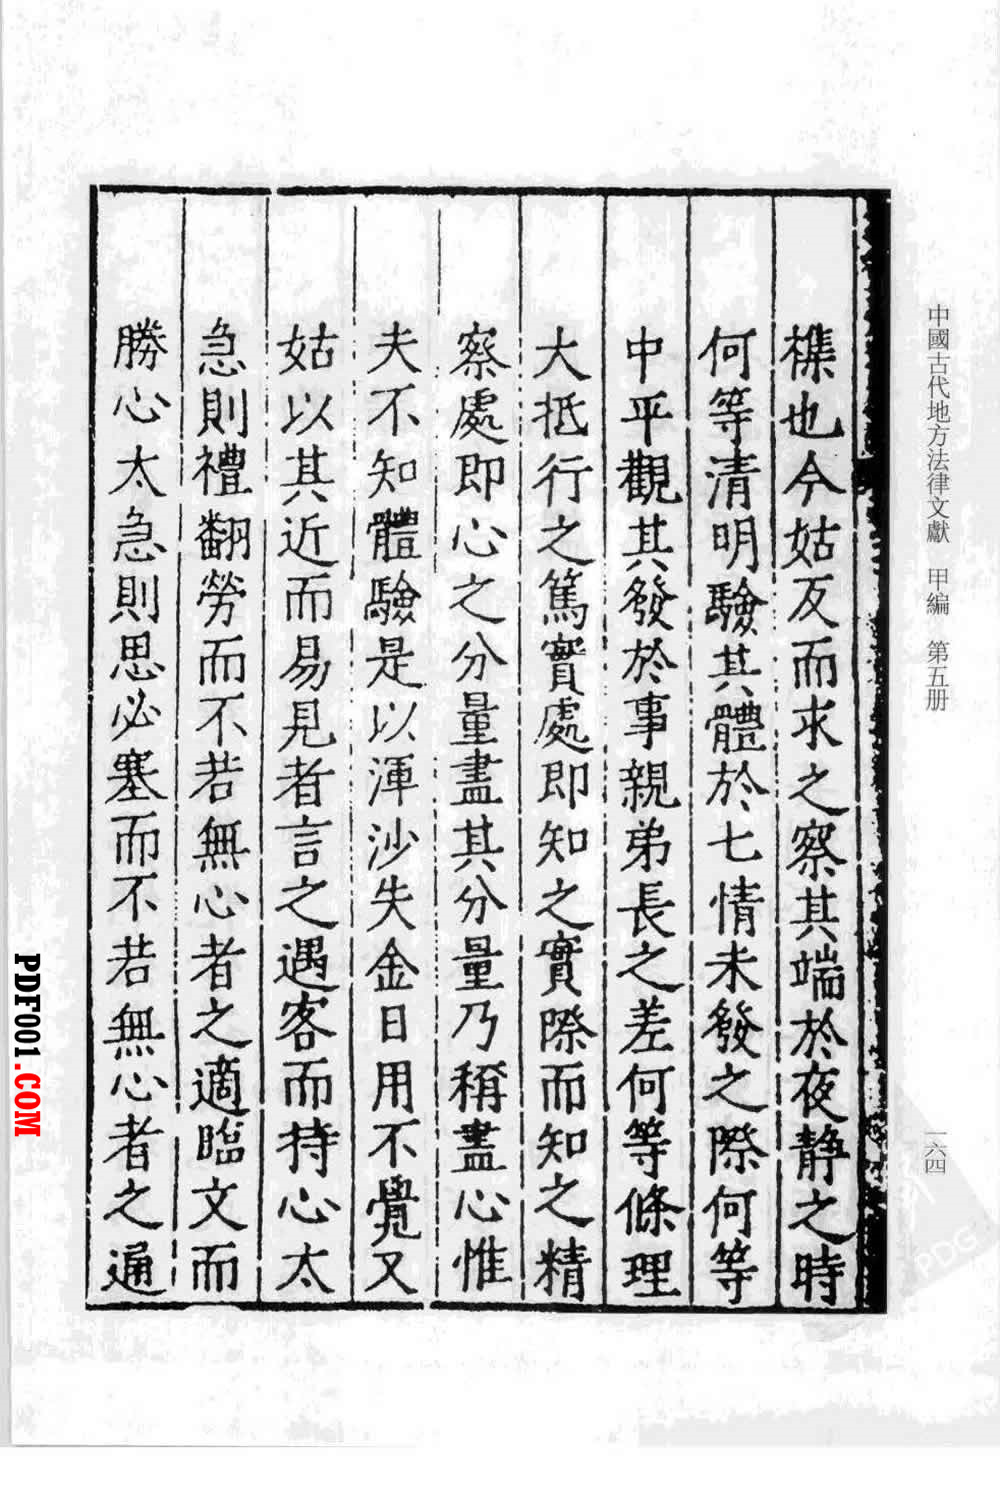 中國古代地方法律文獻 甲編 第五册
一六四
櫵也今姑反而求之察其端於夜静之時
何等清明驗其體於七情未發之際何等
中平觀其發於事親弟長之差何等條理
大抵行之篤實處即知之實際而知之精
察處即心之分量盡其分量乃稱盡心惟
夫不知體驗是以渾沙失金日用不覺又
姑以其近而易見者言之遇客而持心太
急則禮翻勞而不若無心者之適臨文而
勝心太急則思必塞而不若無心者之通
PDF001.COM
PDG